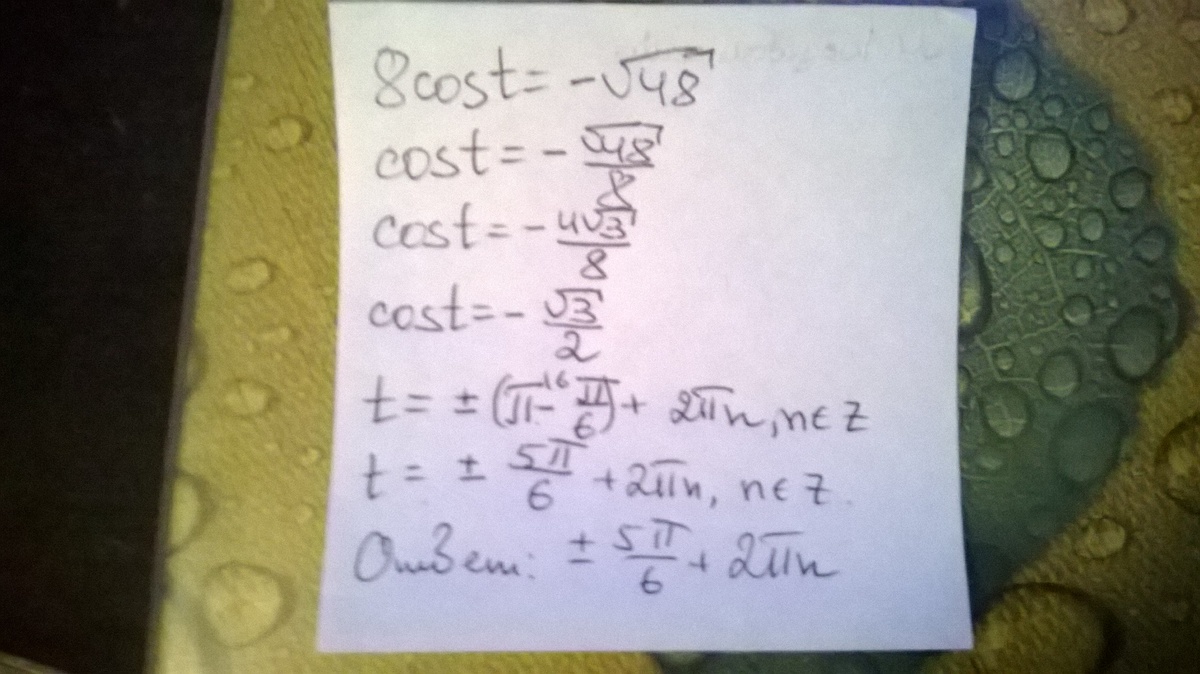 8cost = -√48
cost = - √48/8
cost = - 4√3/8
cost = - √3/2
t = ± (π - π/6) + 2πn, n∈Z
t = ± 5π/6 + 2πn, n∈Z.
Ответ: ± 5π/6 + 2πn